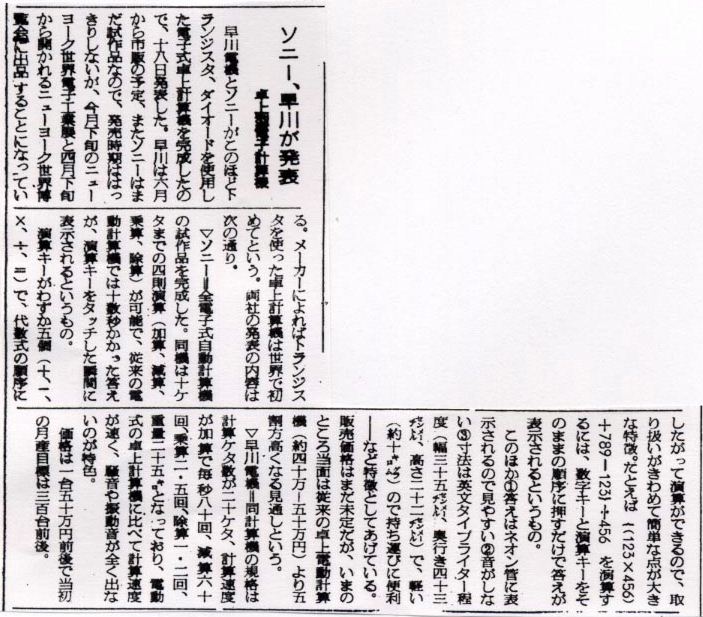 ソニー、早川が発表
卓上型電子計算機
早川電機とソニーがこのほどト
ランジスタ、ダイオードを使用し
た電子式卓上計算機を完成したの
で、十八日発表した。早川は六月
から市販の予定、またソニーはま
だ試作品なので、発売時期ははっ
きりしないが、今月下旬のニュー
ヨーク世界電子工業展と四月下旬
から開かれるニューヨーク世界博
覧会に出品することになってい
る。メーカーによればトランジス
タを使った卓上計算機は世界で初
めてという。両社の発表の内容は
次の通り。
▽ソニー＝全電子式自動計算機
の試作品を完成した。同機は十ケ
タまでの四則演算（加算、減算、
乗算、除算）が可能で、従来の電
動計算機では十数秒かかった答え
が、演算キーをタッチした瞬間に
表示されるというもの。
演算キーがわずか五個（＋、－、
×、÷、＝）で、代数式の順序に
したがって演算ができるので、取
り扱いがきわめて簡単な点が大き
な特徴。たとえば｛（123×456）
＋789－123｝÷456 を演算す
るには、数字キーと演算キーをそ
のままの順序に押すだけで答えが
表示されるというもの。
このほか①答えはネオン管に表
示されるので見やすい②音がしな
い③寸法は英文タイプライター程
度（幅三十五センチ、奥行き四十三
センチ、高さ二十二センチ）で、軽い
（約十キロ）ので持ち運びに便利
――など特徴としてあげている。
販売価格はまだ未定だが、いまの
ところ当面は従来の卓上電動計算
機（約四十万－五十万円）より五
割方高くなる見通しという。
▽早川電機＝同計算機の規格は
計算ケタ数が二十ケタ、計算速度
が加算で毎秒八十回、減算六十
回、乗算二・五回、除算一・二回、
重量二十五キロとなっており、電動
式の卓上計算機に比べて計算速度
が速く、騒音や振動音が全く出な
いのが特色。
価格は一台五十万円前後で当初
の月産目標は三百台前後。